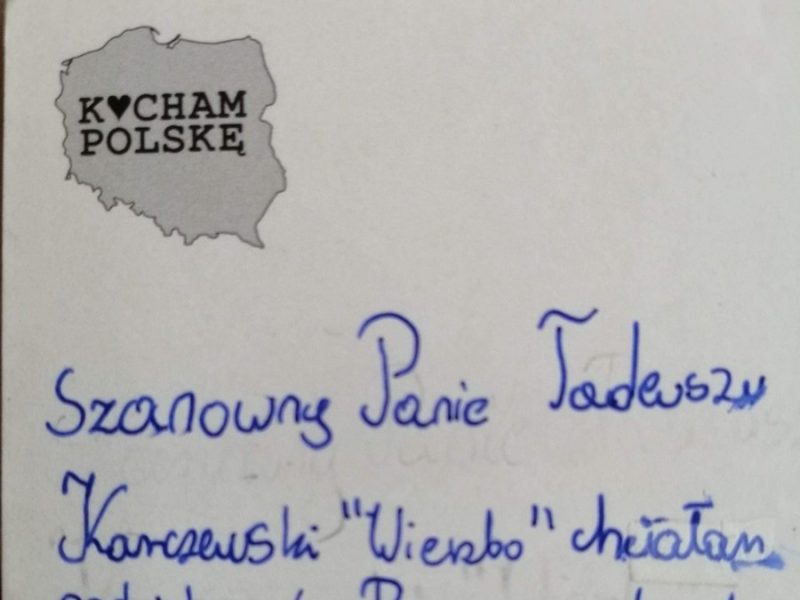 K♥CHAM
POLSKĘ
Szanowny Panie Tadeuszu
Karczewski "Wierzbo" chciałam